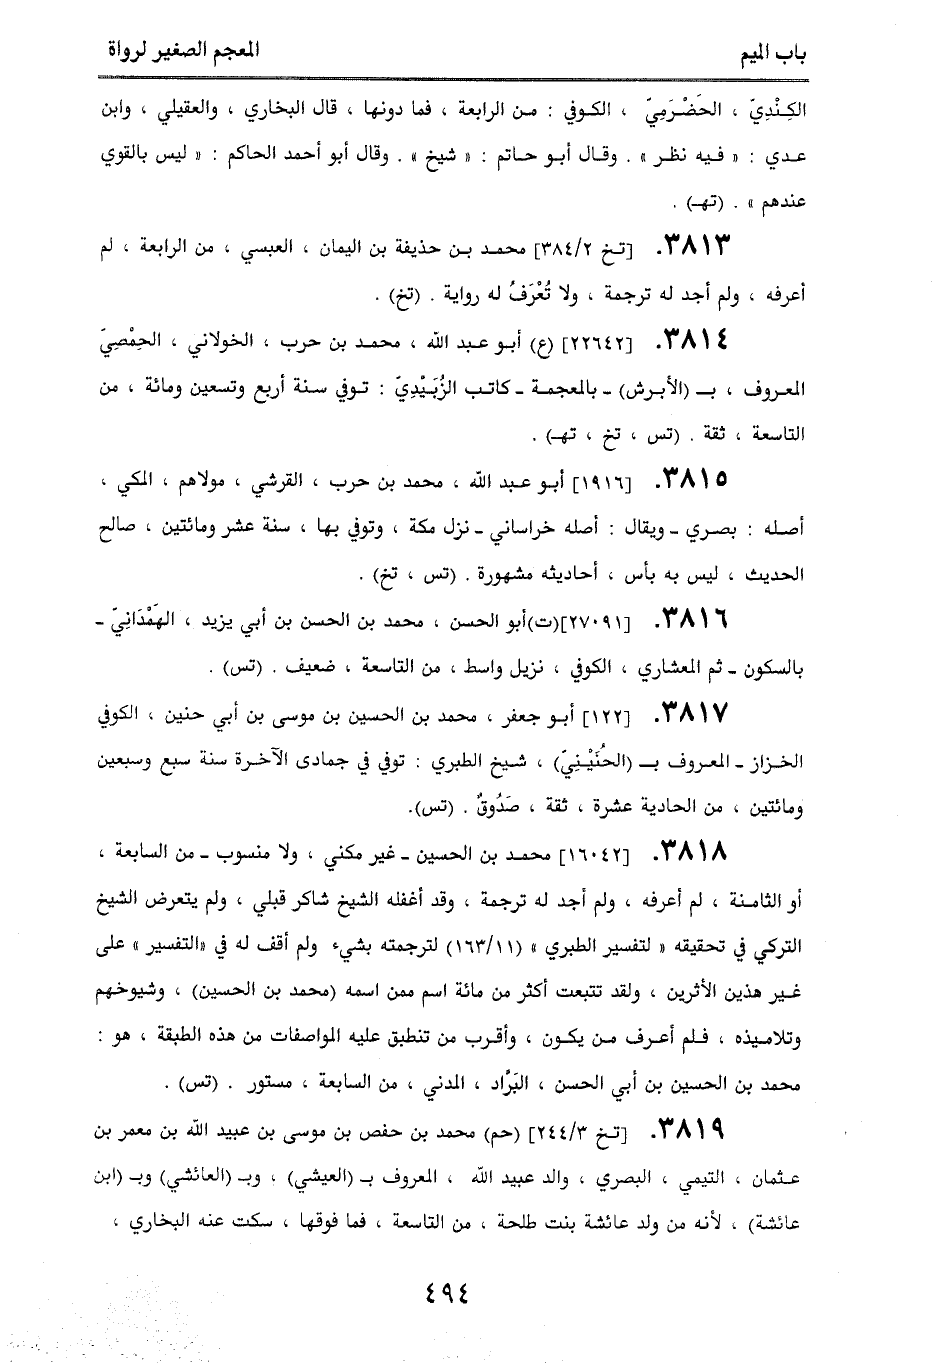 باب الميم
المعجم الصغير لرواة
الكِنْدِيّ ، الحَضْرَمِيّ ، الكوفي : من الرابعة ، فما دونها ، قال البخاري ، والعقيلي ، وابن
عدي : « فيه نظر » . وقال أبو حاتم : « شيخ » . وقال أبو أحمد الحاكم : « ليس بالقوي
عندهم » . (تهـ) .
٣٨١٣. [تخ ٣٨٤/٢] محمد بن حذيفة بن اليمان ، العبسي ، من الرابعة ، لم
أعرفه ، ولم أجد له ترجمة ، ولا تُعْرَفُ له رواية . (تخ) .
٣٨١٤. [٢٢٦٤٢] (ع) أبو عبد الله ، محمد بن حرب ، الخولاني ، الحِمْصِيّ
المعروف ، بـ (الأبرش) ـ بالمعجمة ـ كاتب الزُبَيْدِيّ : توفي سنة أربع وتسعين ومائة ، من
التاسعة ، ثقة . (تس ، تخ ، تهـ) .
٣٨١٥. [١٩١٦] أبو عبد الله ، محمد بن حرب ، القرشي ، مولاهم ، المكي ،
أصله : بصري ـ ويقال : أصله خراساني ـ نزل مكة ، وتوفي بها ، سنة عشر ومائتين ، صالح
الحديث ، ليس به بأس ، أحاديثه مشهورة . (تس ، تخ) .
٣٨١٦. [٢٧٠٩١](ت)أبو الحسن ، محمد بن الحسن بن أبي يزيد ، الهَمْدَانِيّ ـ
بالسكون ـ ثم المعشاري ، الكوفي ، نزيل واسط ، من التاسعة ، ضعيف . (تس) .
٣٨١٧. [١٢٢] أبو جعفر ، محمد بن الحسين بن موسى بن أبي حنين ، الكوفي
الخزاز ـ المعروف بـ (الحُنَيْنِيّ) ، شيخ الطبري : توفي في جمادى الآخرة سنة سبع وسبعين
ومائتين ، من الحادية عشرة ، ثقة ، صَدُوقٌ . (تس).
٣٨١٨. [١٦٠٤٢] محمد بن الحسين ـ غير مكني ، ولا منسوب ـ من السابعة ،
أو الثامنة ، لم أعرفه ، ولم أجد له ترجمة ، وقد أغفله الشيخ شاكر قبلي ، ولم يتعرض الشيخ
التركي في تحقيقه « لتفسير الطبري » (١٦٣/١١) لترجمته بشيء ولم أقف له في «التفسير » على
غير هذين الأثرين ، ولقد تتبعت أكثر من مائة اسم ممن اسمه (محمد بن الحسين) ، وشيوخهم
وتلاميذه ، فلم أعرف من يكون ، وأقرب من تنطبق عليه المواصفات من هذه الطبقة ، هو :
محمد بن الحسين بن أبي الحسن ، البَرَّاد ، المدني ، من السابعة ، مستور . (تس) .
٣٨١٩. [تخ ٢٤٤/٣] (حم) محمد بن حفص بن موسى بن عبيد الله بن معمر بن
عثمان ، التيمي ، البصري ، والد عبيد الله ، المعروف بـ (العيشي) ، وبـ (العائشي) وبـ (ابن
عائشة) ، لأنه من ولد عائشة بنت طلحة ، من التاسعة ، فما فوقها ، سكت عنه البخاري ،
٤٩٤